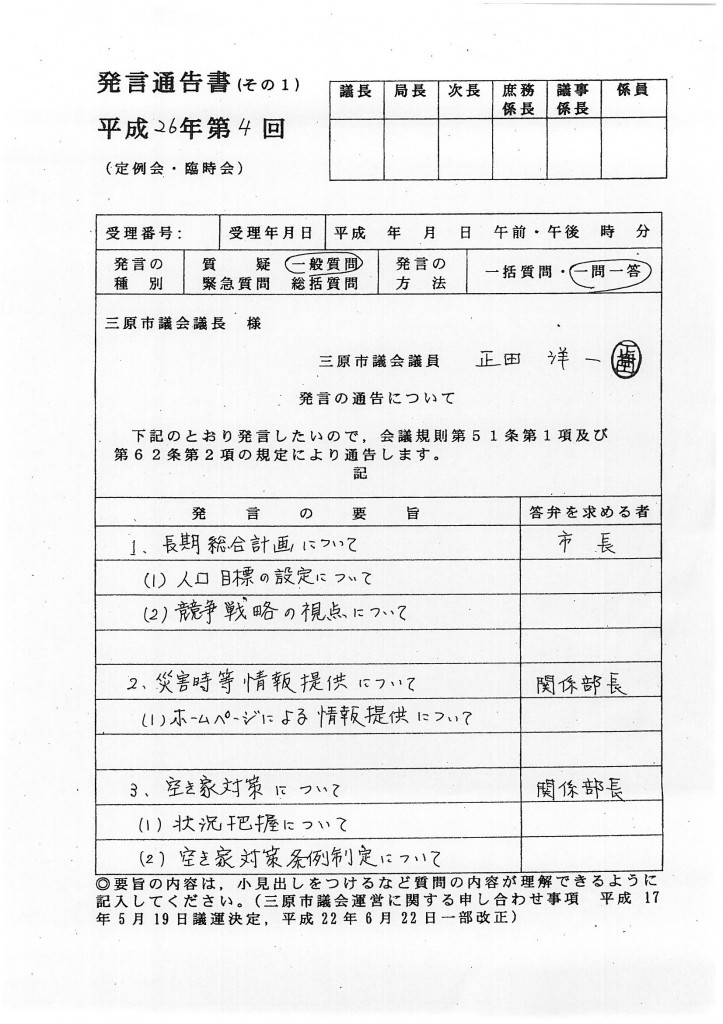 発言通告書(その1)
平成26年第4回
(定例会・臨時会)
議長 局長 次長 庶務係長 議事係長 係員
受理番号: 受理年月日 平成 年 月 日 午前・午後 時 分
発言の種別 質疑 一般質問 緊急質問 総括質問 発言の方法 一括質問・一問一答
三原市議会議長 様
三原市議会議員 正田 洋一
発言の通告について
下記のとおり発言したいので,会議規則第51条第1項及び
第62条第2項の規定により通告します。
記
発言の要旨 答弁を求める者
1、長期総合計画について 市長
(1)人口目標の設定について
(2)競争戦略の視点について
2、災害時等情報提供について 関係部長
(1)ホームページによる情報提供について
3、空き家対策について 関係部長
(1)状況把握について
(2)空き家対策条例制定について
◎要旨の内容は,小見出しをつけるなど質問の内容が理解できるように
記入してください。(三原市議会運営に関する申し合わせ事項 平成17
年5月19日議運決定,平成22年6月22日一部改正)